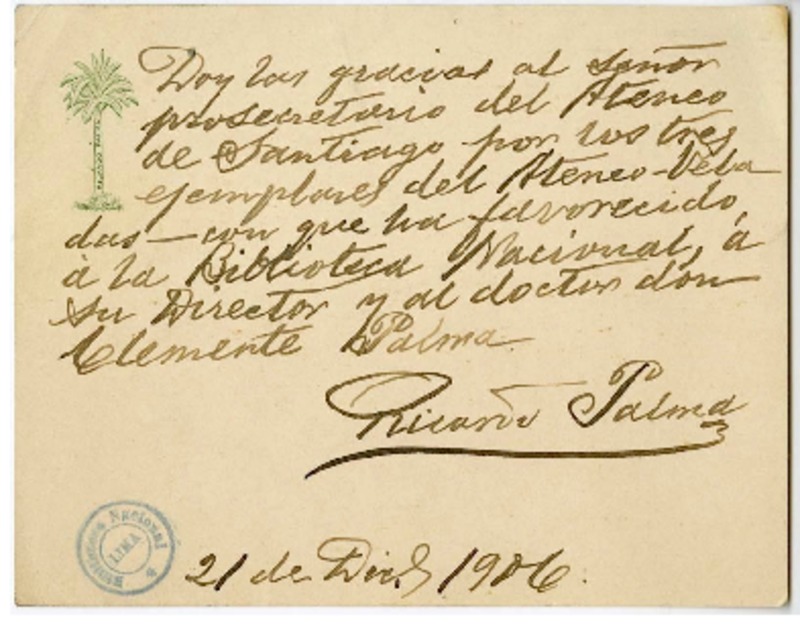 Doy las gracias al señor
prosecretario del Ateneo
de Santiago por los tres
ejemplares del Ateneo-Vela
das—con que ha favorecido,
à la Biblioteca Nacional, à
su Director y al doctor don
Clemente Palma
Ricardo Palma
21 de Dic. 1906.
Biblioteca Nacional
LIMA